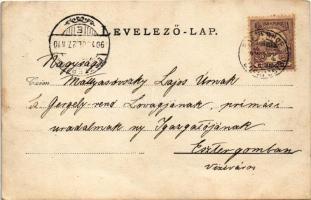 LEVELEZŐ-LAP.
Nagyságos
Mattyasovszky Lajos Urnak
a Gergely-rend Lovagjának, primási
uradalmak ny. Igazgatójának
Esztergomban
Viziváros